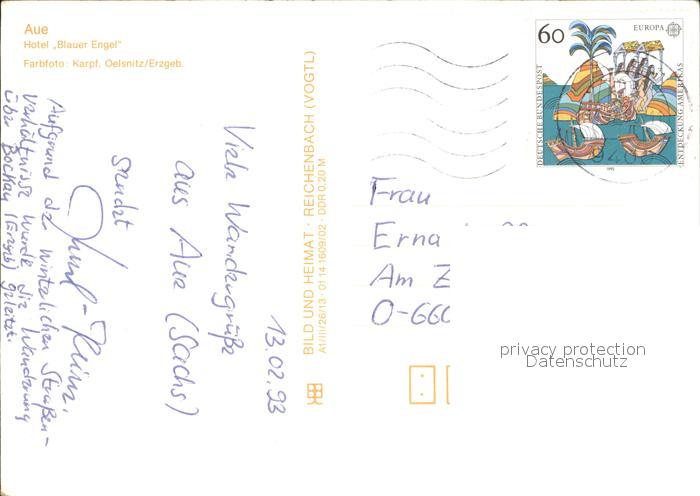 Aue
Hotel „Blauer Engel"
Farbfoto: Karpf, Oelsnitz/Erzgeb.
13.02.93
Viele Wandergrüße
aus Aue (Sachs)
sendet
Aufgrund de winterlichen Straßen-
verhältnisse wurde die Wanderung
über Bockau (Erzgeb)
BILD UND HEIMAT · REICHENBACH (VOGTL)
A1/III/26/13 · 01 14 1609/02 · DDR 0,20 M
60
EUROPA
DEUTSCHE BUNDESPOST
ENTDECKUNG AMERIKAS
1992
Frau
Erna
Am
O-660
privacy protection
Datenschutz